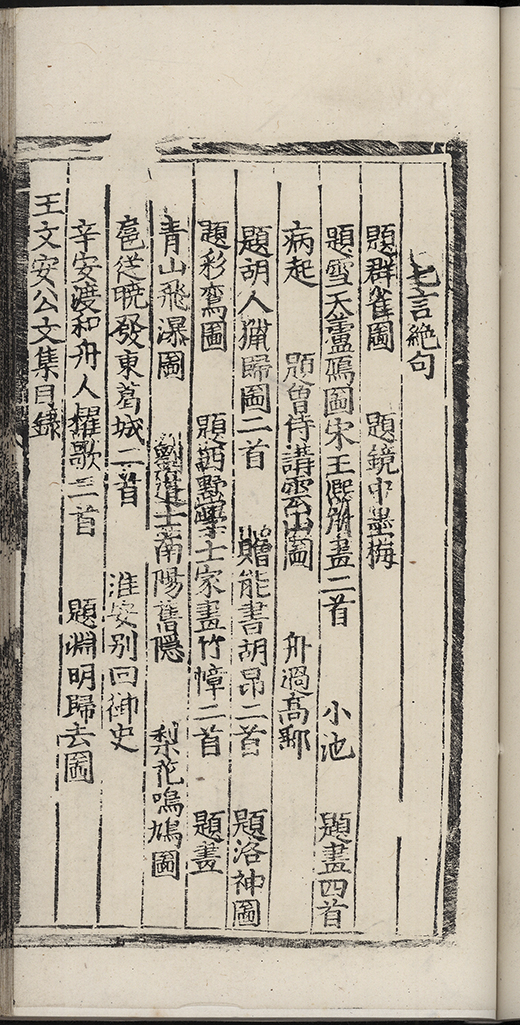 七言絕句
題群雀圖 題鏡中墨梅
題雪天蘆鴈圖宋王熈所畫二首 小池 題畫四首
病起 題曾侍講雲山圖 舟過髙郵
題胡人獵歸圖二首 贈能書胡昂二首 題洛神圖
題彩鸞圖 題西墅學士家畫竹幛二首 題畫
青山飛瀑圖 道士南陽舊隱 梨花鳴鳩圖
扈從曉發東葛城二首 淮安别回御史
辛安渡和舟人櫂歌三首 題淵明歸去圖
王文安公文集目錄